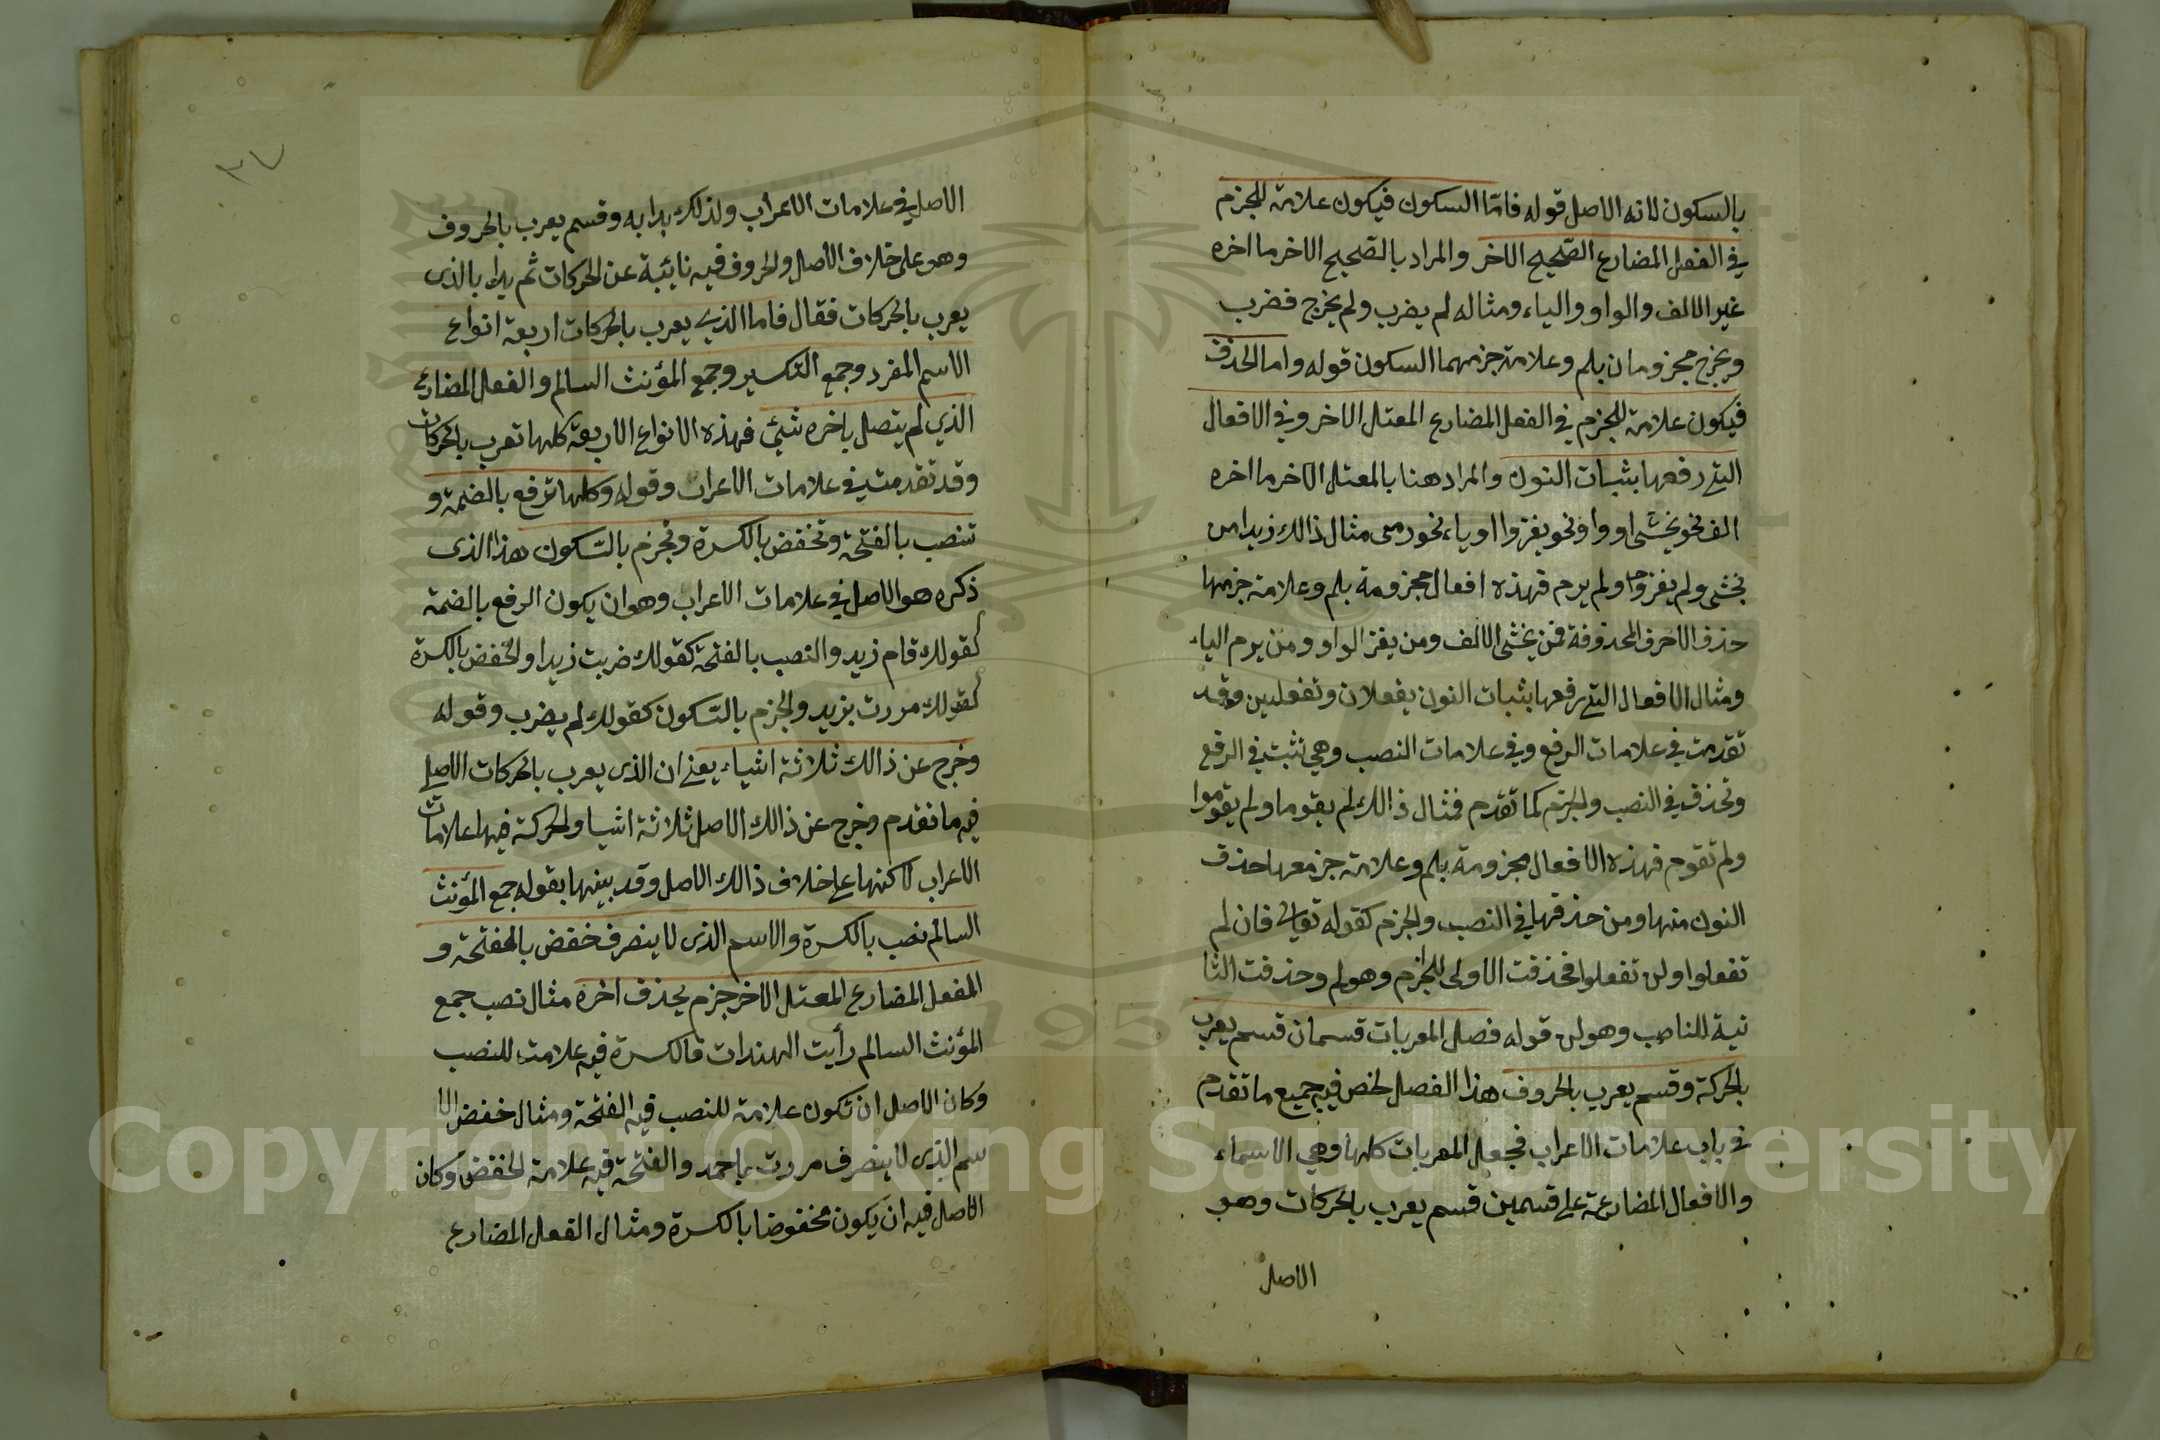 بالسكون لانه الاصل قوله فامّا السكون فيكون علامة للجزم
في الفعل المضارع الصّحيح الاخر والمراد بالصّحيح الاخر ما اخره
غير الالف والواو والياء ومثاله لم يضرب ولم يخرج فضرب
ويخرج مجزومان بلم وعلامة جزمهما السكون قوله واما الحذف
فيكون علامة للجزم في الفعل المضارع المعتل الاخر وفي الافعال
التي رفعها بثبات النون والمراد هنا بالمعتل الاخر ما اخره
الف نحو يخشى او واو نحو يغزوا او ياء نحو رمى مثال ذالك زيد لم
يخشى ولم يغزوا ولم يرم فهذه افعال مجزومة بلم وعلامة جزمها
حذف الاحرف المحذوفة فمن يخشى الالف ومن يغز الواو ومن يرم الياء
ومثال الافعال التي رفعها بثبات النون يفعلان وتفعلين وقد
تقدمت في علامات الرفع وفي علامات النصب وهي تثبت في الرفع
وتحذف في النصب والجزم كما تقدم فمثال ذالك لم يقوما ولم يقوموا
ولم تقوم فهذه الافعال مجزومة بلم وعلامة جزمعها حذف
النون منها ومن حذفها في النصب والجزم كقوله تعالى فان لم
تفعلوا ولن تفعلوا فحذفت الاولى للجزم وهو لم وحذفت الثا
نية للناصب وهو لن قوله فصل المعربات قسمان قسم يعرب
بالحركة وقسم يعرب بالحروف هذا الفصل لخص فيه جميع ما تقدم
في باب علامات الاعراب فجعل المعربات كلها وهي الاسماء
والافعال المضارعة على قسمين قسم يعرب بالحركات وهو
الاصل
٣٧
الاصل في علامات الاعراب ولذلك بدا به وقسم يعرب بالحروف
وهو على خلاف الأصل والحروف فيه نايئبة عن الحركات ثم بدا بالذى
يعرب بالحركات فقال فاما الذي يعرب بالحركات اربعة انواع
الاسم المفرد وجمع التكسير وجمع المؤنث السالم والفعل المضارع
الذي لم يتصل باخره شئ فهذه الانواع الاربعة كلها تعرب بالحركات
وقد تقدمت في علامات الاعراب وقوله وكلها ترفع بالضمة و
تنصب بالفتحة وتخفض بالكسرة وتجزم بالسّكون هذا الذى
ذكره هو الاصل في علامات الاعراب وهو ان يكون الرفع بالضمة
كقولك قام زيد والنصب بالفتحة كقولك ضربت زيدا والخفض بالكسرة
كقولك مررت بزيد والجزم بالسّكون كقولك لم يضرب وقوله
وخرج عن ذالك ثلاثة اشياء يعني ان الذى يعرب بالحركات الاصل
فيه ما تقدم وخرج عن ذالك الاصل ثلاثة اشيا والحركة فيها علامات
الاعراب لاكنها على خلاف ذالك الاصل وقد بينها بقوله جمع المؤنث
السالم نصب بالكسرة والاسم الذى لا ينصرف خفض بالفتحة و
الفعل المضارع المعتل الاخر جزم بحذف اخره مثال نصب جمع
المؤنث السالم رأيت الهندات فالكسرة فيه علامة للنصب
وكان الاصل ان تكون علامة للنصب فيه الفتحة ومثال خفض الا
سم الذى لا ينصرف مررت باحمد والفتحة فيه علامة الخفض وكان
الاصل فيه ان يكون مخفوضا بالكسرة ومثال الفعل المضارع
Copyright © King Saud University
1957